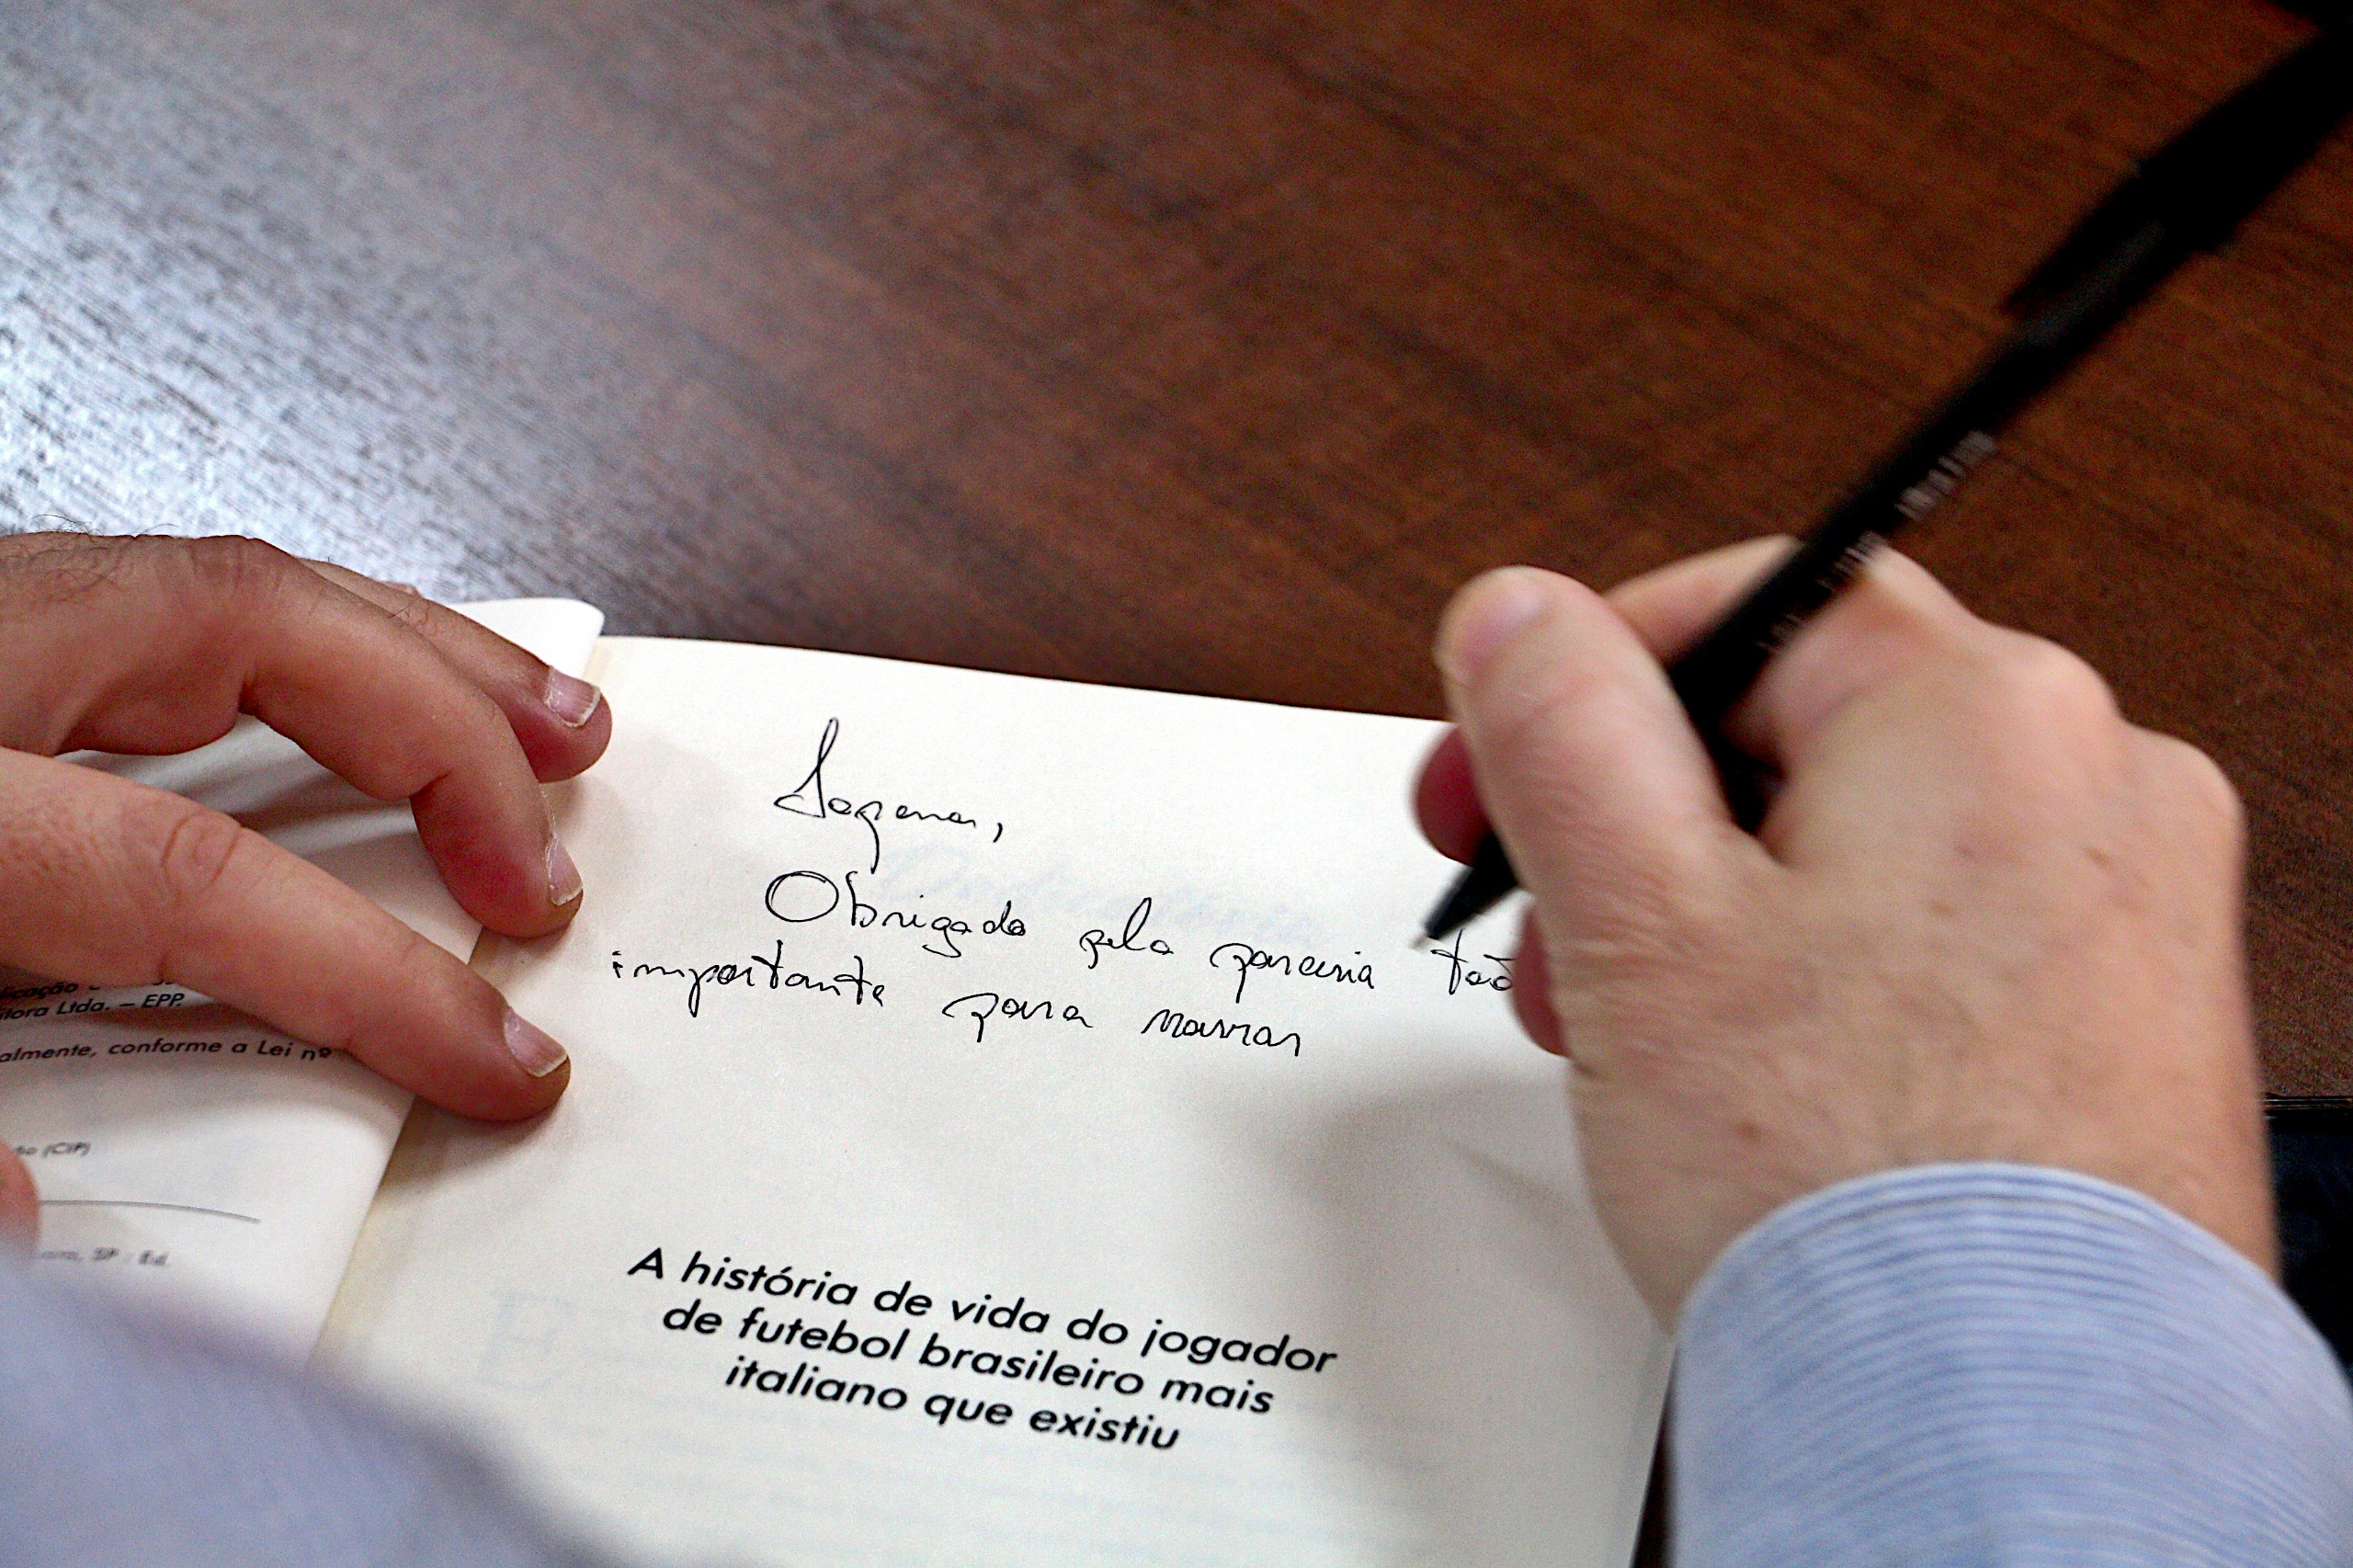 Obrigado pela parceria tão
importante para narrar
A história de vida do jogador
de futebol brasileiro mais
italiano que existiu
licação
itora Ltda. – EPP.
almente, conforme a Lei nº
ão (CIP)
SP : Ed.